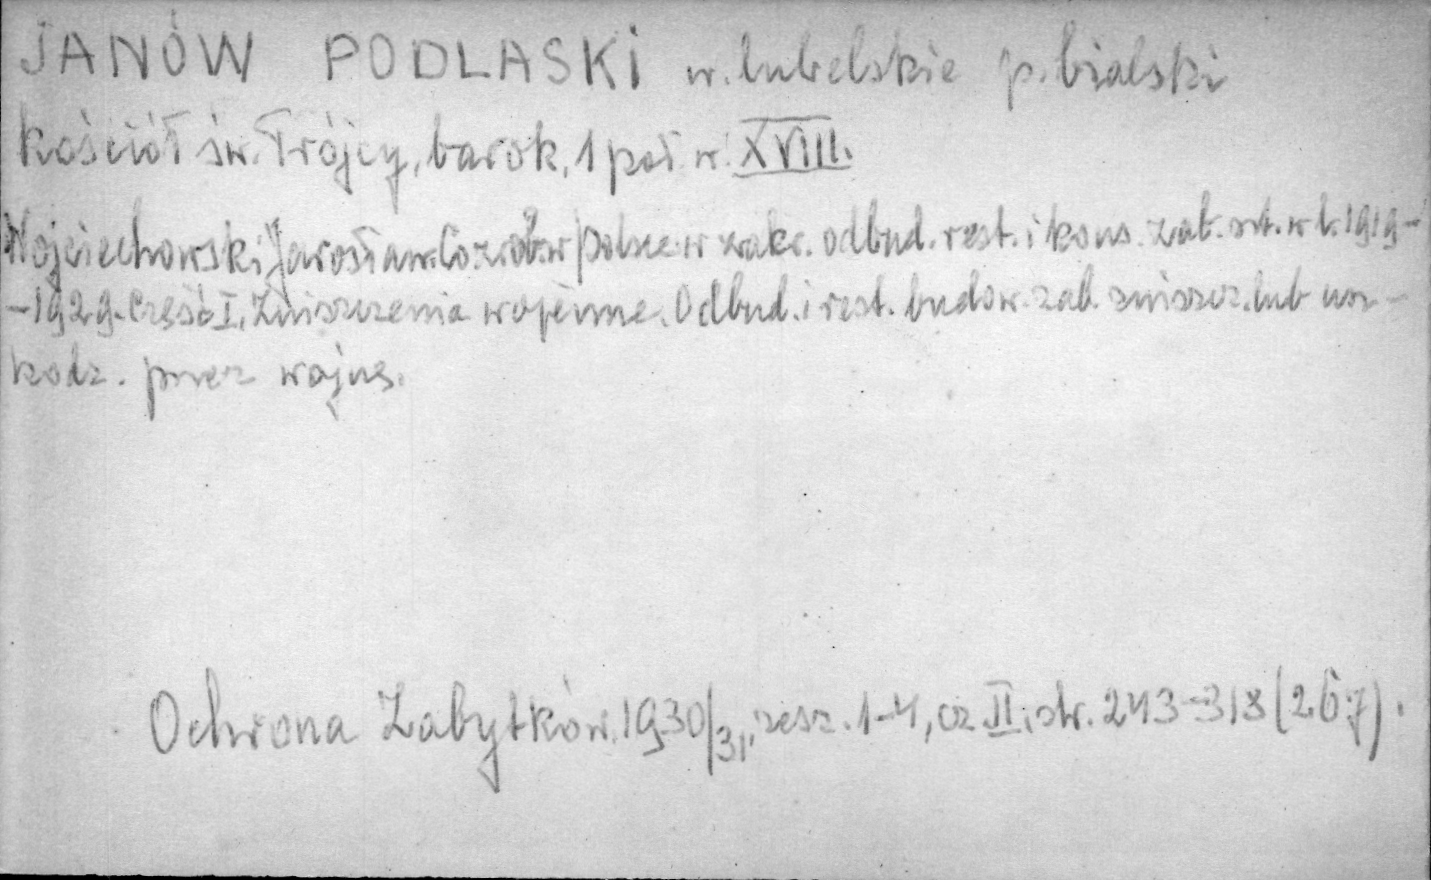 JANÓW PODLASKI w. lubelskie p. bialski
Kościół św. Trójcy, barok, 1 poł. w. XVIII.
Wojciechowski Jarosław. Co zrob. w Polsce w zakr. odbud. rest. i kons. zab. szt. w l. 1919-
-1929. Część I, Zniszczenia wojenne. Odbud. i rest. budow. zab. zniszcz. lub usz-
kodz. przez wojnę.
Ochrona Zabytków. 1930/31, zesz. 1-4, cz II, str. 243-318 (267).